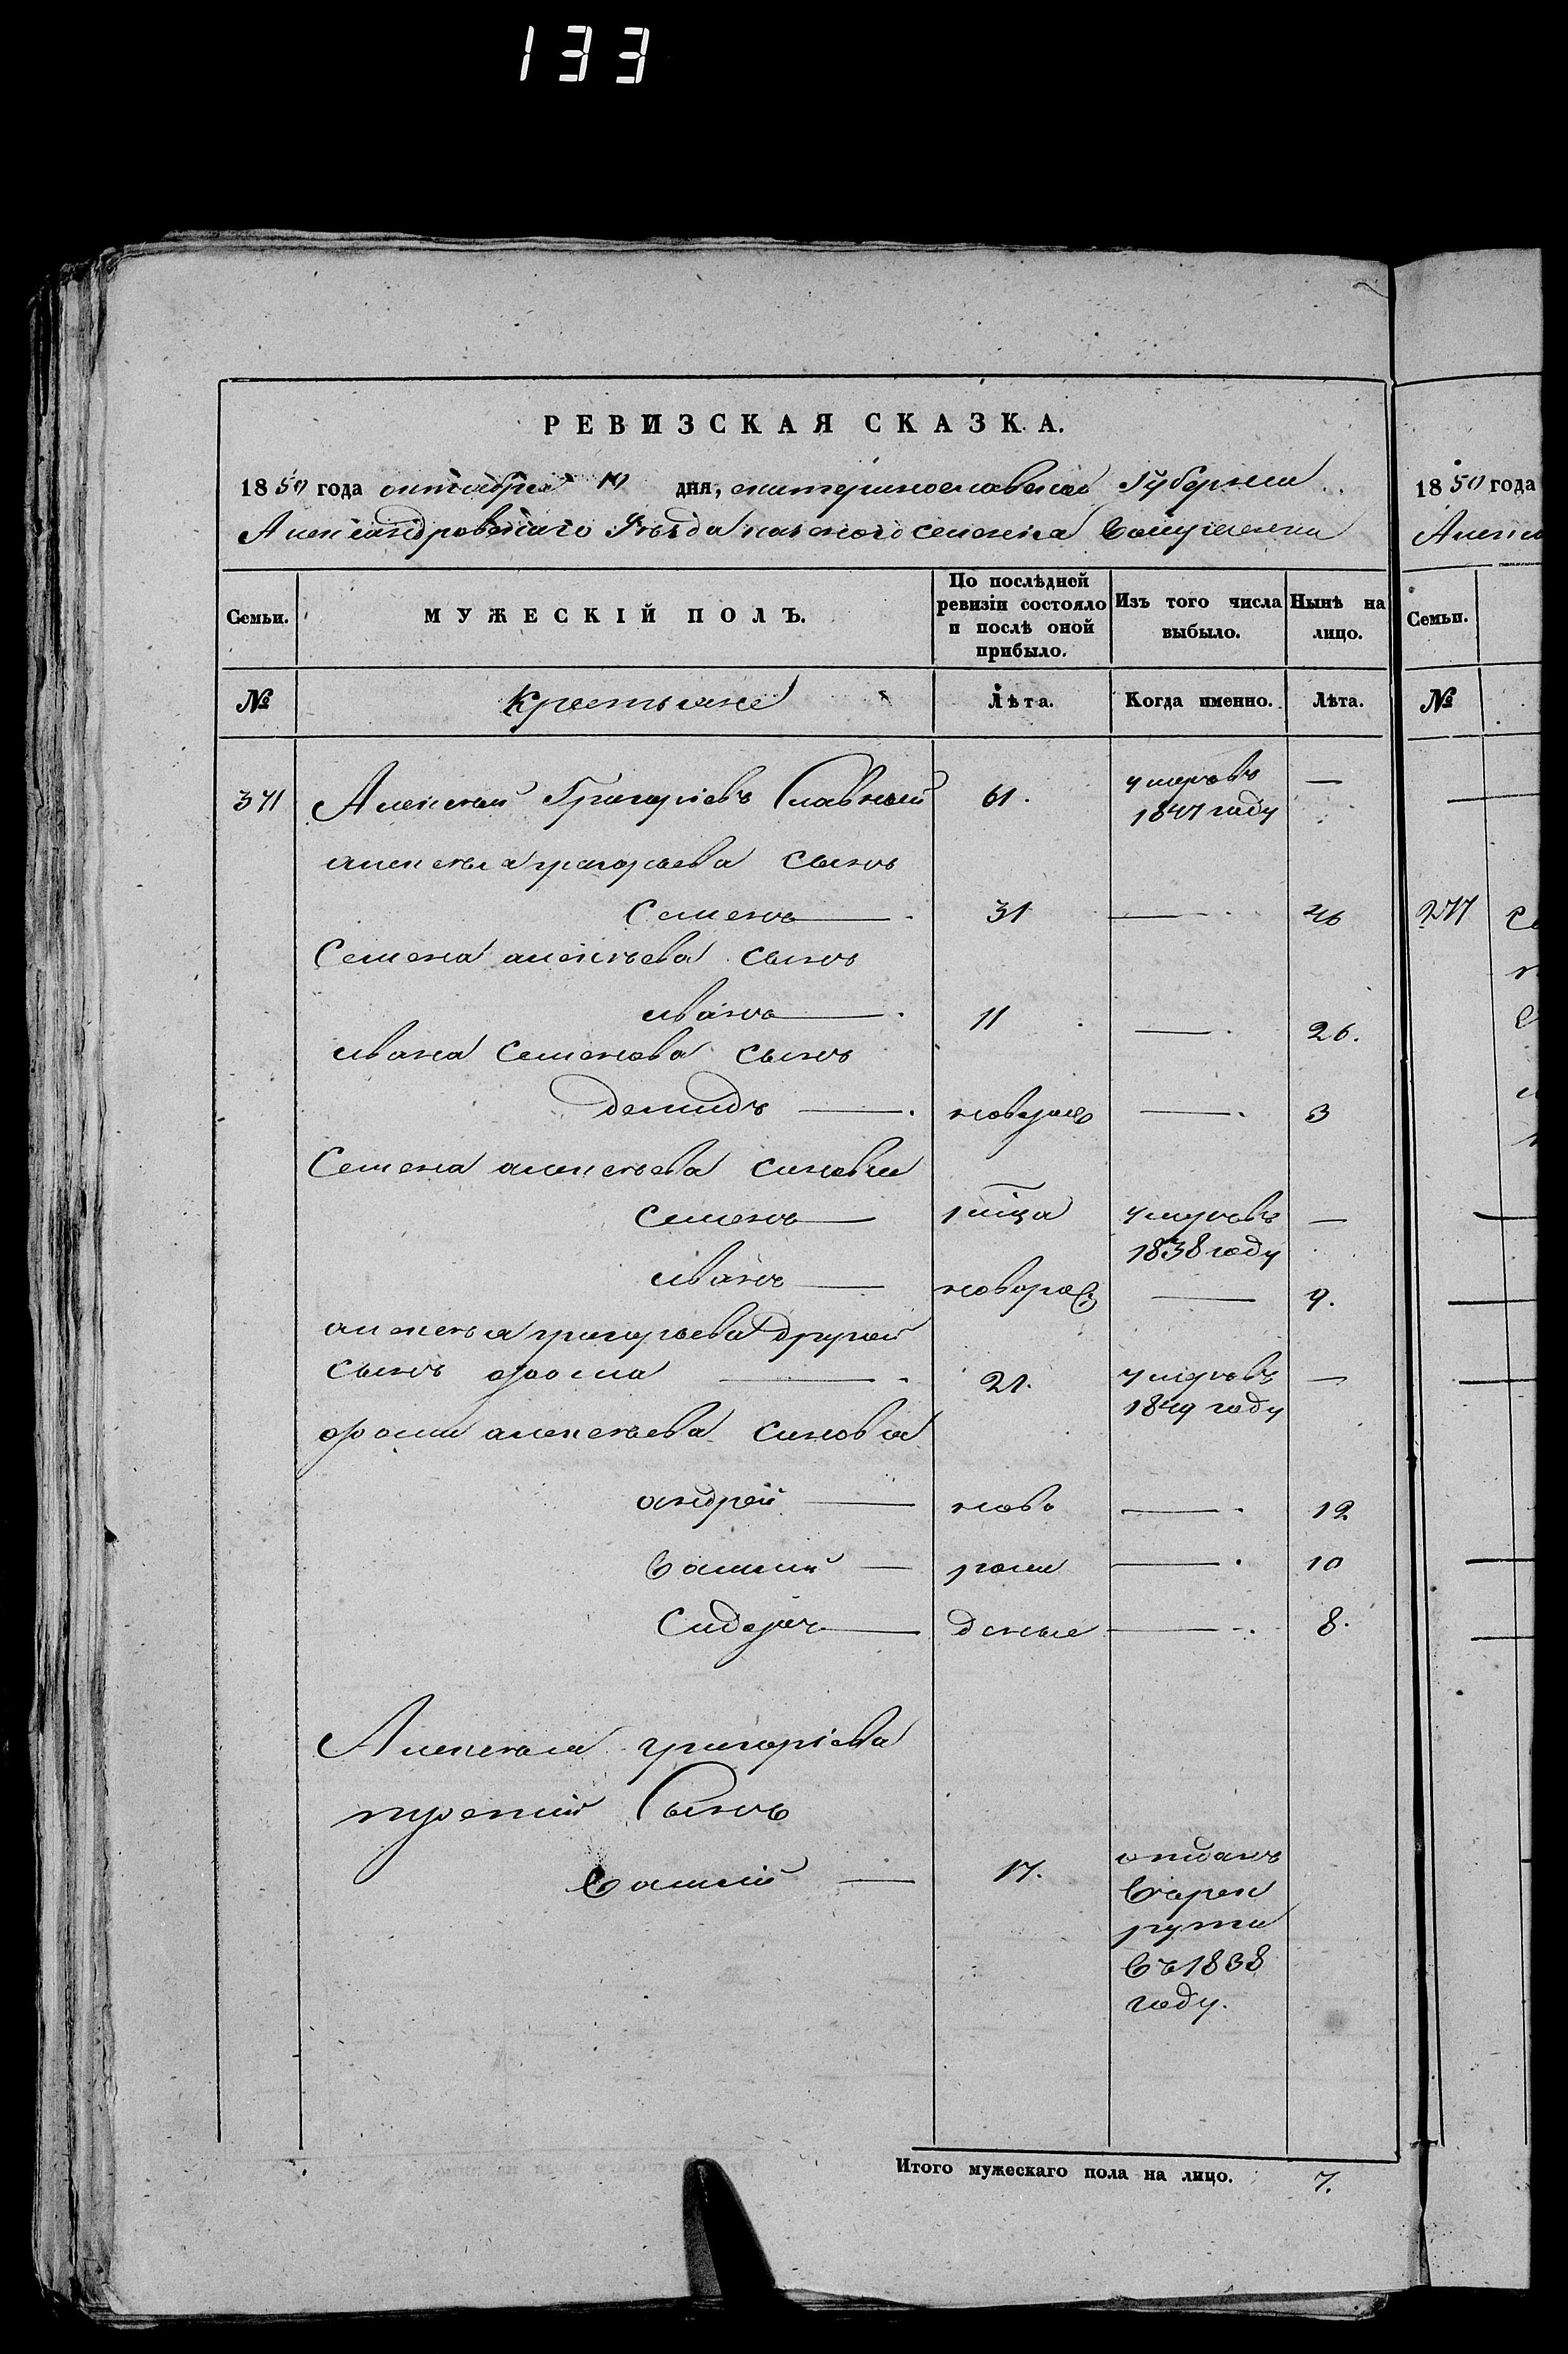 133
РЕВИЗСКАЯ СКАЗКА.
1850 года октября 10 дня, екатеринославской Губернии
Александровскаго Уѣзда казеного селения
Семьи. МУЖЕСКІЙ ПОЛЪ. По послѣдней ревизіи состояло и послѣ оной прибыло. Изъ того числа выбыло. Нынѣ на лицо.
№ Крестьяне Лѣта. Когда именно. Лѣта.
371 Алексей Григорiевъ Славный 61. умеръ въ —
1847 году
алексея григорьева сынъ
Семенъ — 31 — 46
Семена алексѣева сынъ
иванъ — 11 — 26.
ивана Семенова сынъ
демидъ — новорож — 3
Семена алексѣева синовья
Семенъ — 1 мѣца умеръ въ —
1838 году
иванъ — новорож — 9.
алексея григорьева другой
сынъ фома — 21. умеръ въ —
1849 году
фомы алексѣева синовья
андрей — ново — 12
василий — рож — 10
Сидоръ — деные — 8.
Алексея григорiева
третий Сынъ
василий — 17. отданъ
врек
руты
въ 1838
году.
Итого мужескаго пола на лицо. 7.
1850 года
Семьи.
№
277